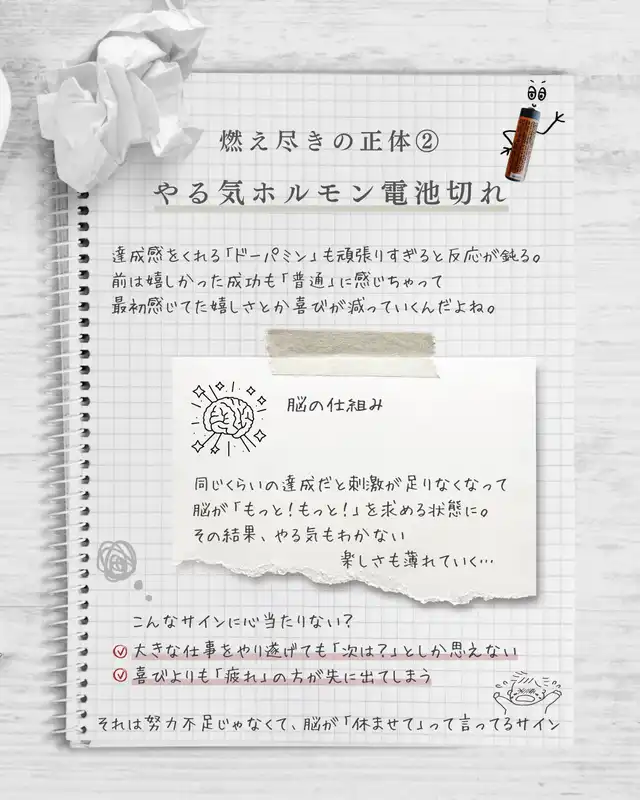 燃え尽きの正体②
やる気ホルモン電池切れ
達成感をくれる「ドーパミン」も頑張りすぎると反応が鈍る。
前は嬉しかった成功も「普通」に感じちゃって
最初感じてた嬉しさとか喜びが減っていくんだよね。
脳の仕組み
同じくらいの達成だと刺激が足りなくなって
脳が「もっと!もっと!」を求める状態に。
その結果、やる気もわかない
楽しさも薄れていく…
こんなサインに心当たりない?
大きな仕事をやり遂げても「次は?」としか思えない
喜びよりも「疲れ」の方が先に出てしまう
それは努力不足じゃなくて、脳が「休ませて」って言ってるサイン